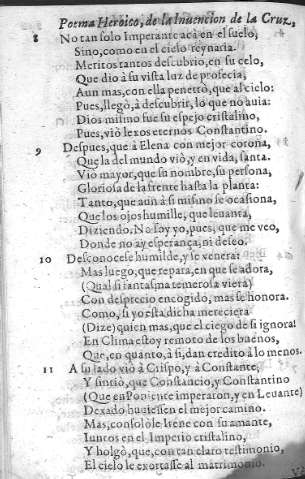 Poema Heroico, de la Inuencion de la Cruz,
8 No tan solo Imperante acà en el suelo,
Sino, como en el cielo reynaria.
Meritos tantos descubrio, en su celo,
Que dio à su vista luz de profecia,
Aun mas, con ella penetrò, que al cielo:
Pues, llegò, à descubrir, lo que no auia:
Dios mismo fue su espejo cristalino,
Pues, viò lexos eternos Constantino.
9 Despues, que à Elena con mejor corona,
Que la del mundo viò, y en vida, santa.
Vio mayor, que su nombre, su persona,
Gloriosa de la frente hasta la planta:
Tanto, que aun à si mismo se ocasiona,
Que los ojos humille, que leuanta,
Diziendo: No soy yo, pues, que me veo,
Donde no ay esperança, ni deseo.
10 Desconocese humilde, y se venera:
Mas luego, que repara, en que se adora,
(Qual si fantasma temerosa viera)
Con desprecio encogido, mas se honora.
Como, si yo esta dicha mereciera
(Dize) quien mas, que el ciego de si ignora!
En Clima estoy remoto de los buenos,
Que, en quanto, à si, dan credito à lo menos.
11 A su lado viò à Crispo, y à Constante,
Y sintiò, que Constancio, y Constantino
(Que en Poniente imperaron, y en Leuante)
Dexado huuiessen el mejor camino.
Mas, consolòle Irene con su amante,
Iuntos en el Imperio cristalino,
Y holgò, que, con tan claro testimonio,
El cielo le exortasse al matrimonio.